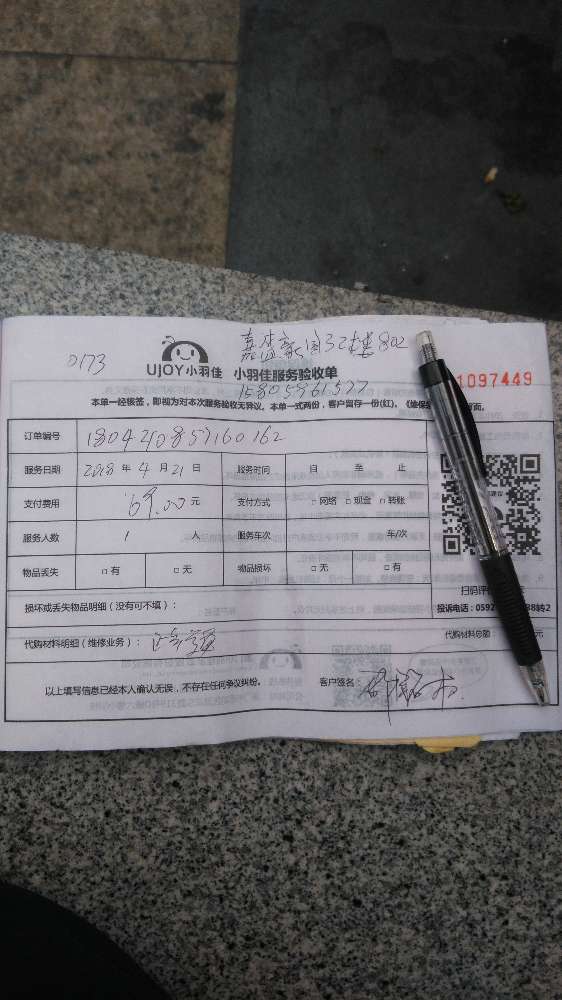 0173
嘉盛豪园32楼802
UJOY小羽佳 小羽佳服务验收单
15805961577
1097449
本单一经核签，即视为对本次服务验收无异议。本单一式两份，客户留存一份(红)。《维保 页面。
订单编号 18042108577160162
服务日期 2018 年 4 月 21 日 服务时间 自 至 止
支付费用 69.00 元 支付方式 □ 网络 □ 现金 □ 转账
服务人数 1 人 服务车次 车/次
物品丢失 □ 有 □ 无 物品损坏 □ 无 □ 有
扫码评
损坏或丢失物品明细（没有可不填）：
投诉电话：0592 38转2
代购材料明细（维修业务）：
代购材料总额： 元
以上填写信息已经本人确认无误，不存在任何争议纠纷。 客户签名